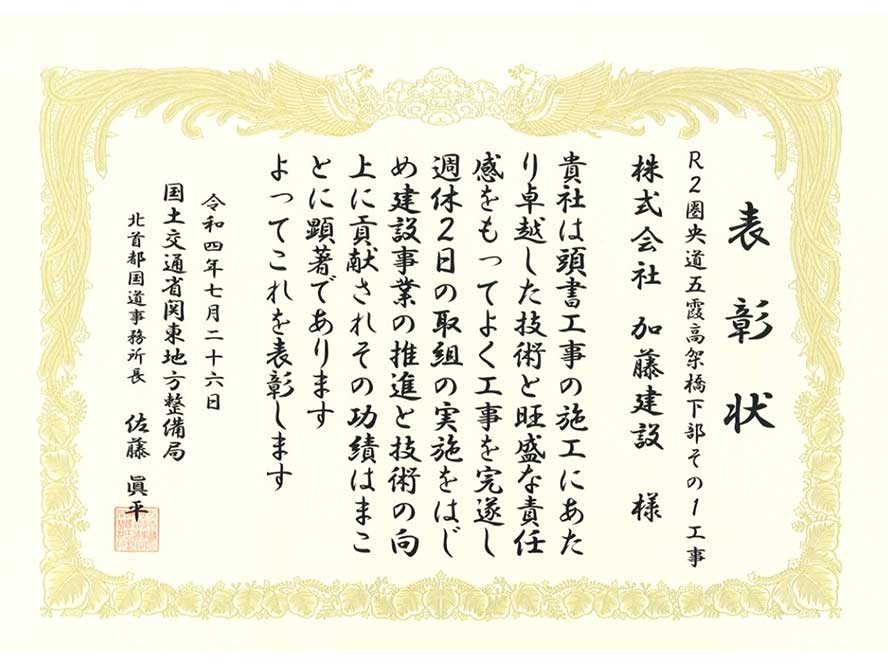 表彰状
R2圏央道五霞高架橋下部その1工事
株式会社 加藤建設 様
貴社は頭書工事の施工にあた
り卓越した技術と旺盛な責任
感をもってよく工事を完遂し
週休2日の取組の実施をはじ
め建設事業の推進と技術の向
上に貢献されその功績はまこ
とに顕著であります
よってこれを表彰します
令和四年七月二十六日
国土交通省関東地方整備局
北首都国道事務所長 佐藤 眞平